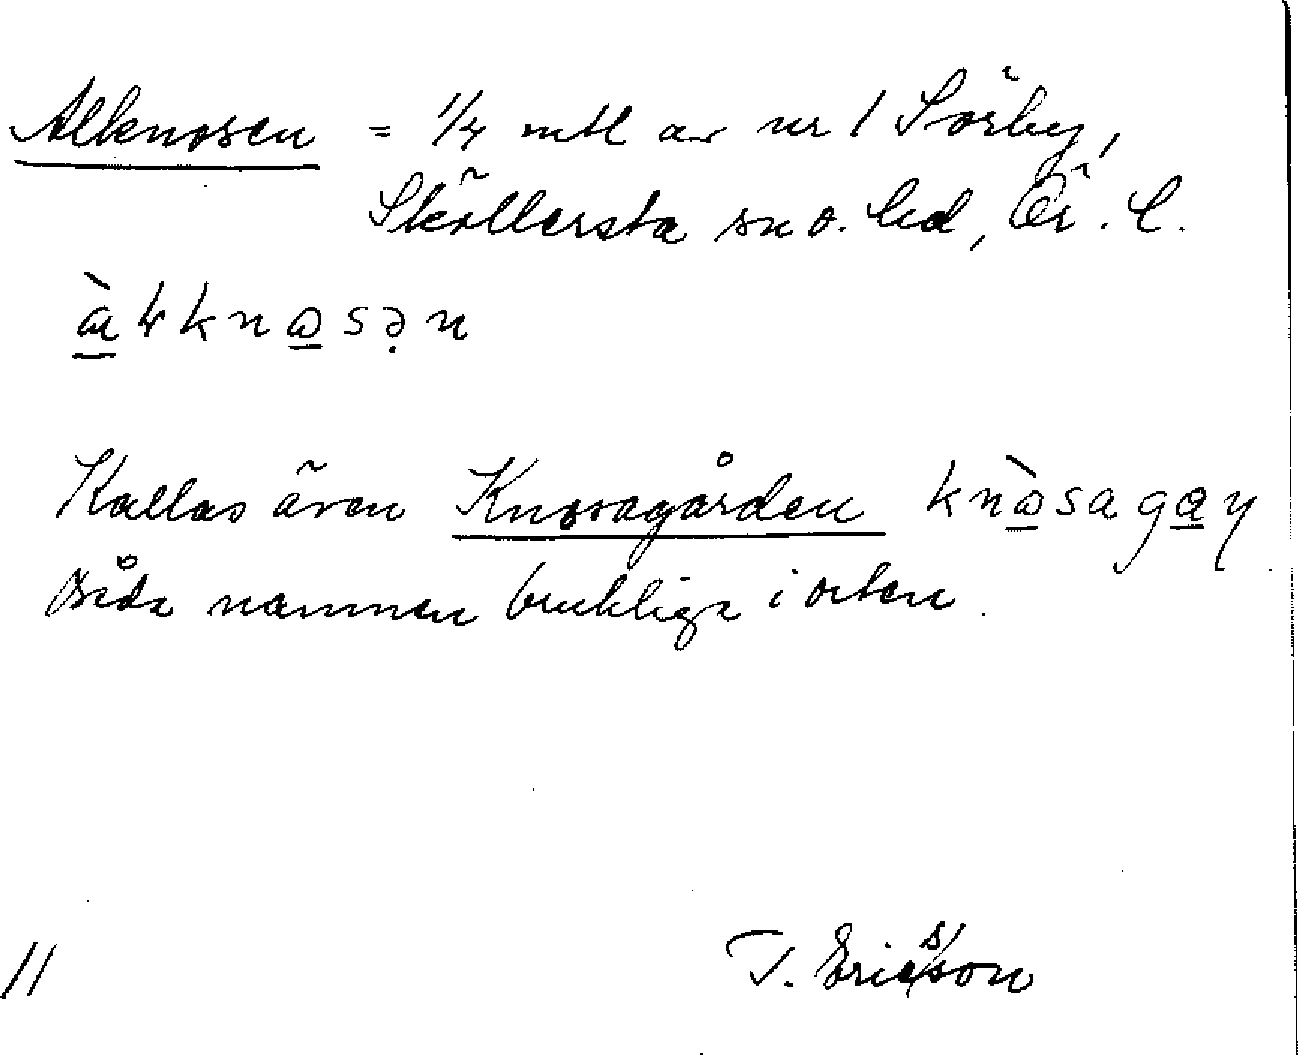 Alknosen = 1/4 mtl av nr 1 Sörby,
Sköllersta sn o. hd, Ör. l.
Kallas även Knosagården
Båda namnen brukliga i orten.
11
T. Ericsson